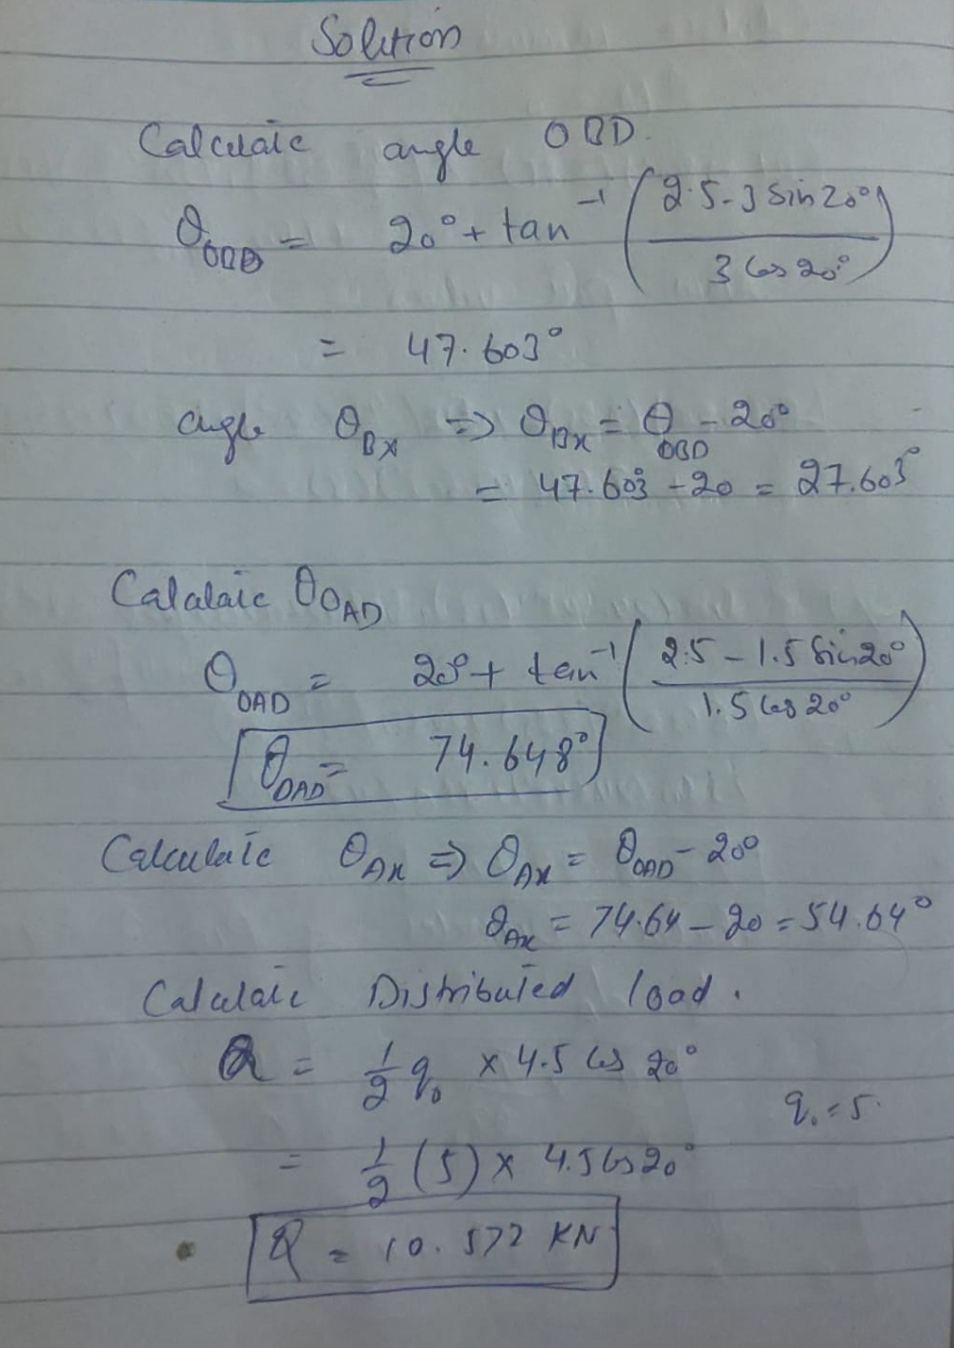 Solution
Calculate angle OBD.
θOBD = 20° + tan⁻¹ (2.5 - 3 Sin 20° / 3 Cos 20°)
= 47.603°
angle θBx ⇒ θBx = θOBD - 20°
= 47.603 - 20 = 27.603°
Calculate θOAD
θOAD = 20° + tan⁻¹ (2.5 - 1.5 Sin 20° / 1.5 Cos 20°)
θOAD = 74.648°
Calculate θAx ⇒ θAx = θOAD - 20°
θAx = 74.64 - 20 = 54.64°
Calculate Distributed load.
Q = 1/2 q₀ × 4.5 Cos 20°
q₀ = 5.
= 1/2 (5) × 4.5 Cos 20°
Q = 10.572 KN